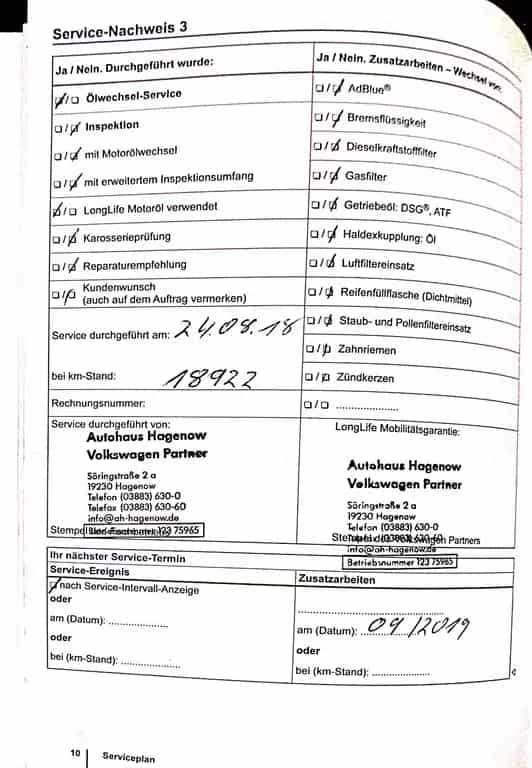 Service-Nachweis 3
Ja / Nein. Durchgeführt wurde:
☑/☐ Ölwechsel-Service
☐/☑ Inspektion
☐/☑ mit Motorölwechsel
☐/☑ mit erweitertem Inspektionsumfang
☑/☐ LongLife Motoröl verwendet
☐/☑ Karosserieprüfung
☐/☑ Reparaturempfehlung
☐/☑ Kundenwunsch
(auch auf dem Auftrag vermerken)
Service durchgeführt am: 24.08.18
bei km-Stand: 18922
Rechnungsnummer:
Ja / Nein. Zusatzarbeiten – Wechsel von:
☐/☑ AdBlue®
☐/☑ Bremsflüssigkeit
☐/☑ Dieselkraftstofffilter
☐/☑ Gasfilter
☐/☑ Getriebeöl: DSG®, ATF
☐/☑ Haldexkupplung: Öl
☐/☑ Luftfiltereinsatz
☐/☑ Reifenfüllflasche (Dichtmittel)
☐/☑ Staub- und Pollenfiltereinsatz
☐/☑ Zahnriemen
☐/☑ Zündkerzen
☐/☐ ....................
Service durchgeführt von:
Autohaus Hagenow
Volkswagen Partner
Söringstraße 2 a
19230 Hagenow
Telefon (03883) 630-0
Telefax (03883) 630-60
info@ah-hagenow.de
Stempel
123 75965
LongLife Mobilitätsgarantie:
Autohaus Hagenow
Volkswagen Partner
Söringstraße 2 a
19230 Hagenow
Telefon (03883) 630-0
(03883) 630-60
Volkswagen Partners
info@ah-hagenow.de
Betriebsnummer 123 75965
Ihr nächster Service-Termin
Service-Ereignis
☑ nach Service-Intervall-Anzeige
oder
am (Datum): ....................
oder
bei (km-Stand): ....................
Zusatzarbeiten
....................
am (Datum): 09/2019
oder
bei (km-Stand): ....................
10 | Serviceplan